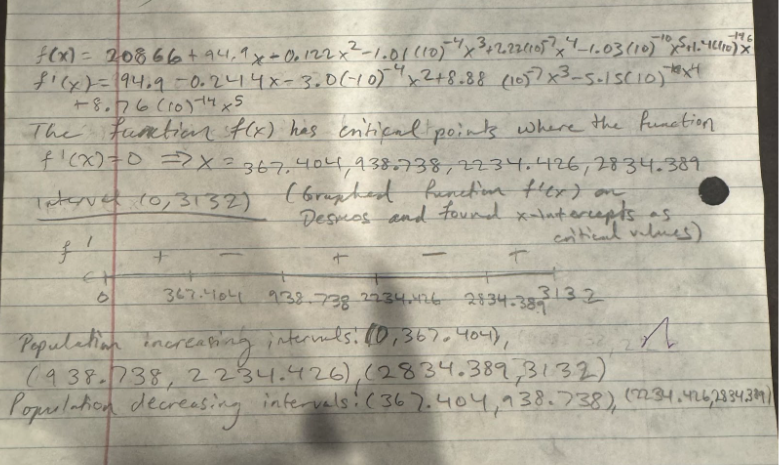 f(x) = 20866 + 94.9x - 0.122x² - 1.01(10)⁻⁴x³ + 2.22(10)⁻⁷x⁴ - 1.03(10)⁻¹⁰x⁵ + 1.46(10)⁻¹⁴x⁶
f'(x) = 94.9 - 0.244x - 3.0(-10)⁻⁴x² + 8.88 (10)⁻⁷x³ - 5.15(10)⁻¹⁰x⁴
+ 8.76(10)⁻¹⁴x⁵
The function f(x) has critical points where the function
f'(x)=0 ⇒ x = 367.404, 938.738, 2234.426, 2834.389
interval (0, 3132) (Graphed function f'(x) on
Desmos and found x-intercepts as
critical values)
f' + - + - +
0 367.404 938.738 2234.426 2834.389 3132
Population increasing intervals: (0, 367.404),
(938.738, 2234.426), (2834.389, 3132)
Population decreasing intervals: (367.404, 938.738), (2234.426, 2834.389)